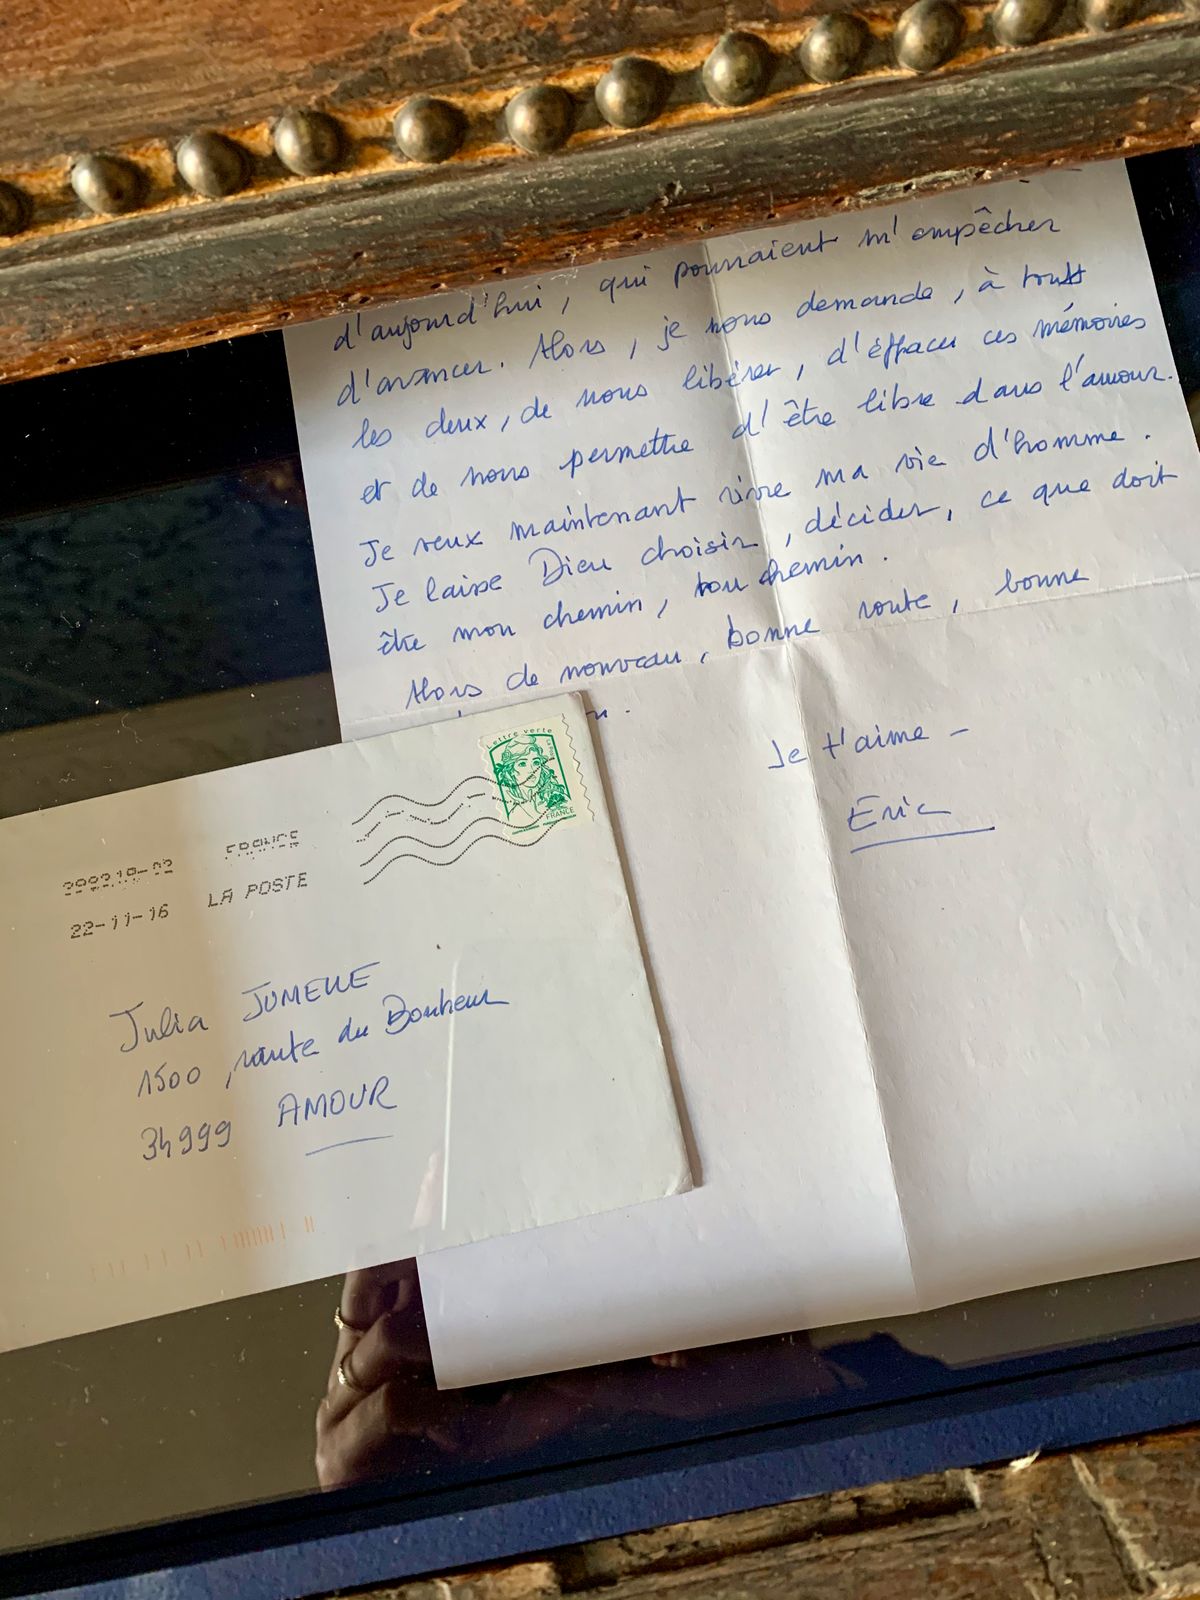 d'aujourd'hui, qui pourraient m'empêcher
d'avancer. Alors, je nous demande, à tous
les deux, de nous libérer, d'effacer ces mémoires
et de nous permettre d'être libre dans l'amour.
Je veux maintenant vivre ma vie d'homme.
Je laisse Dieu choisir, décider, ce que doit
être mon chemin, ton chemin.
Alors de nouveau, bonne route, bonne
Je t'aime -
Eric
Lettre verte
FRANCE
FRANCE
22-11-16 LA POSTE
Julia JUMELLE
1500, route du Bonheur
34999 AMOUR